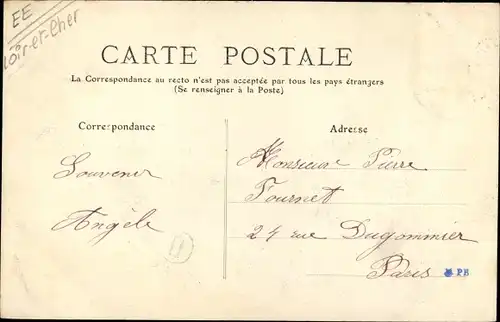 EE
Loir-et-Cher
CARTE POSTALE
La Correspondance au recto n'est pas acceptée par tous les pays étrangers
(Se renseigner à la Poste)
Correspondance
Adresse
Souvenir
Angèle
Monsieur Pierre
Fournet
24 rue Dugommier
Paris
PB